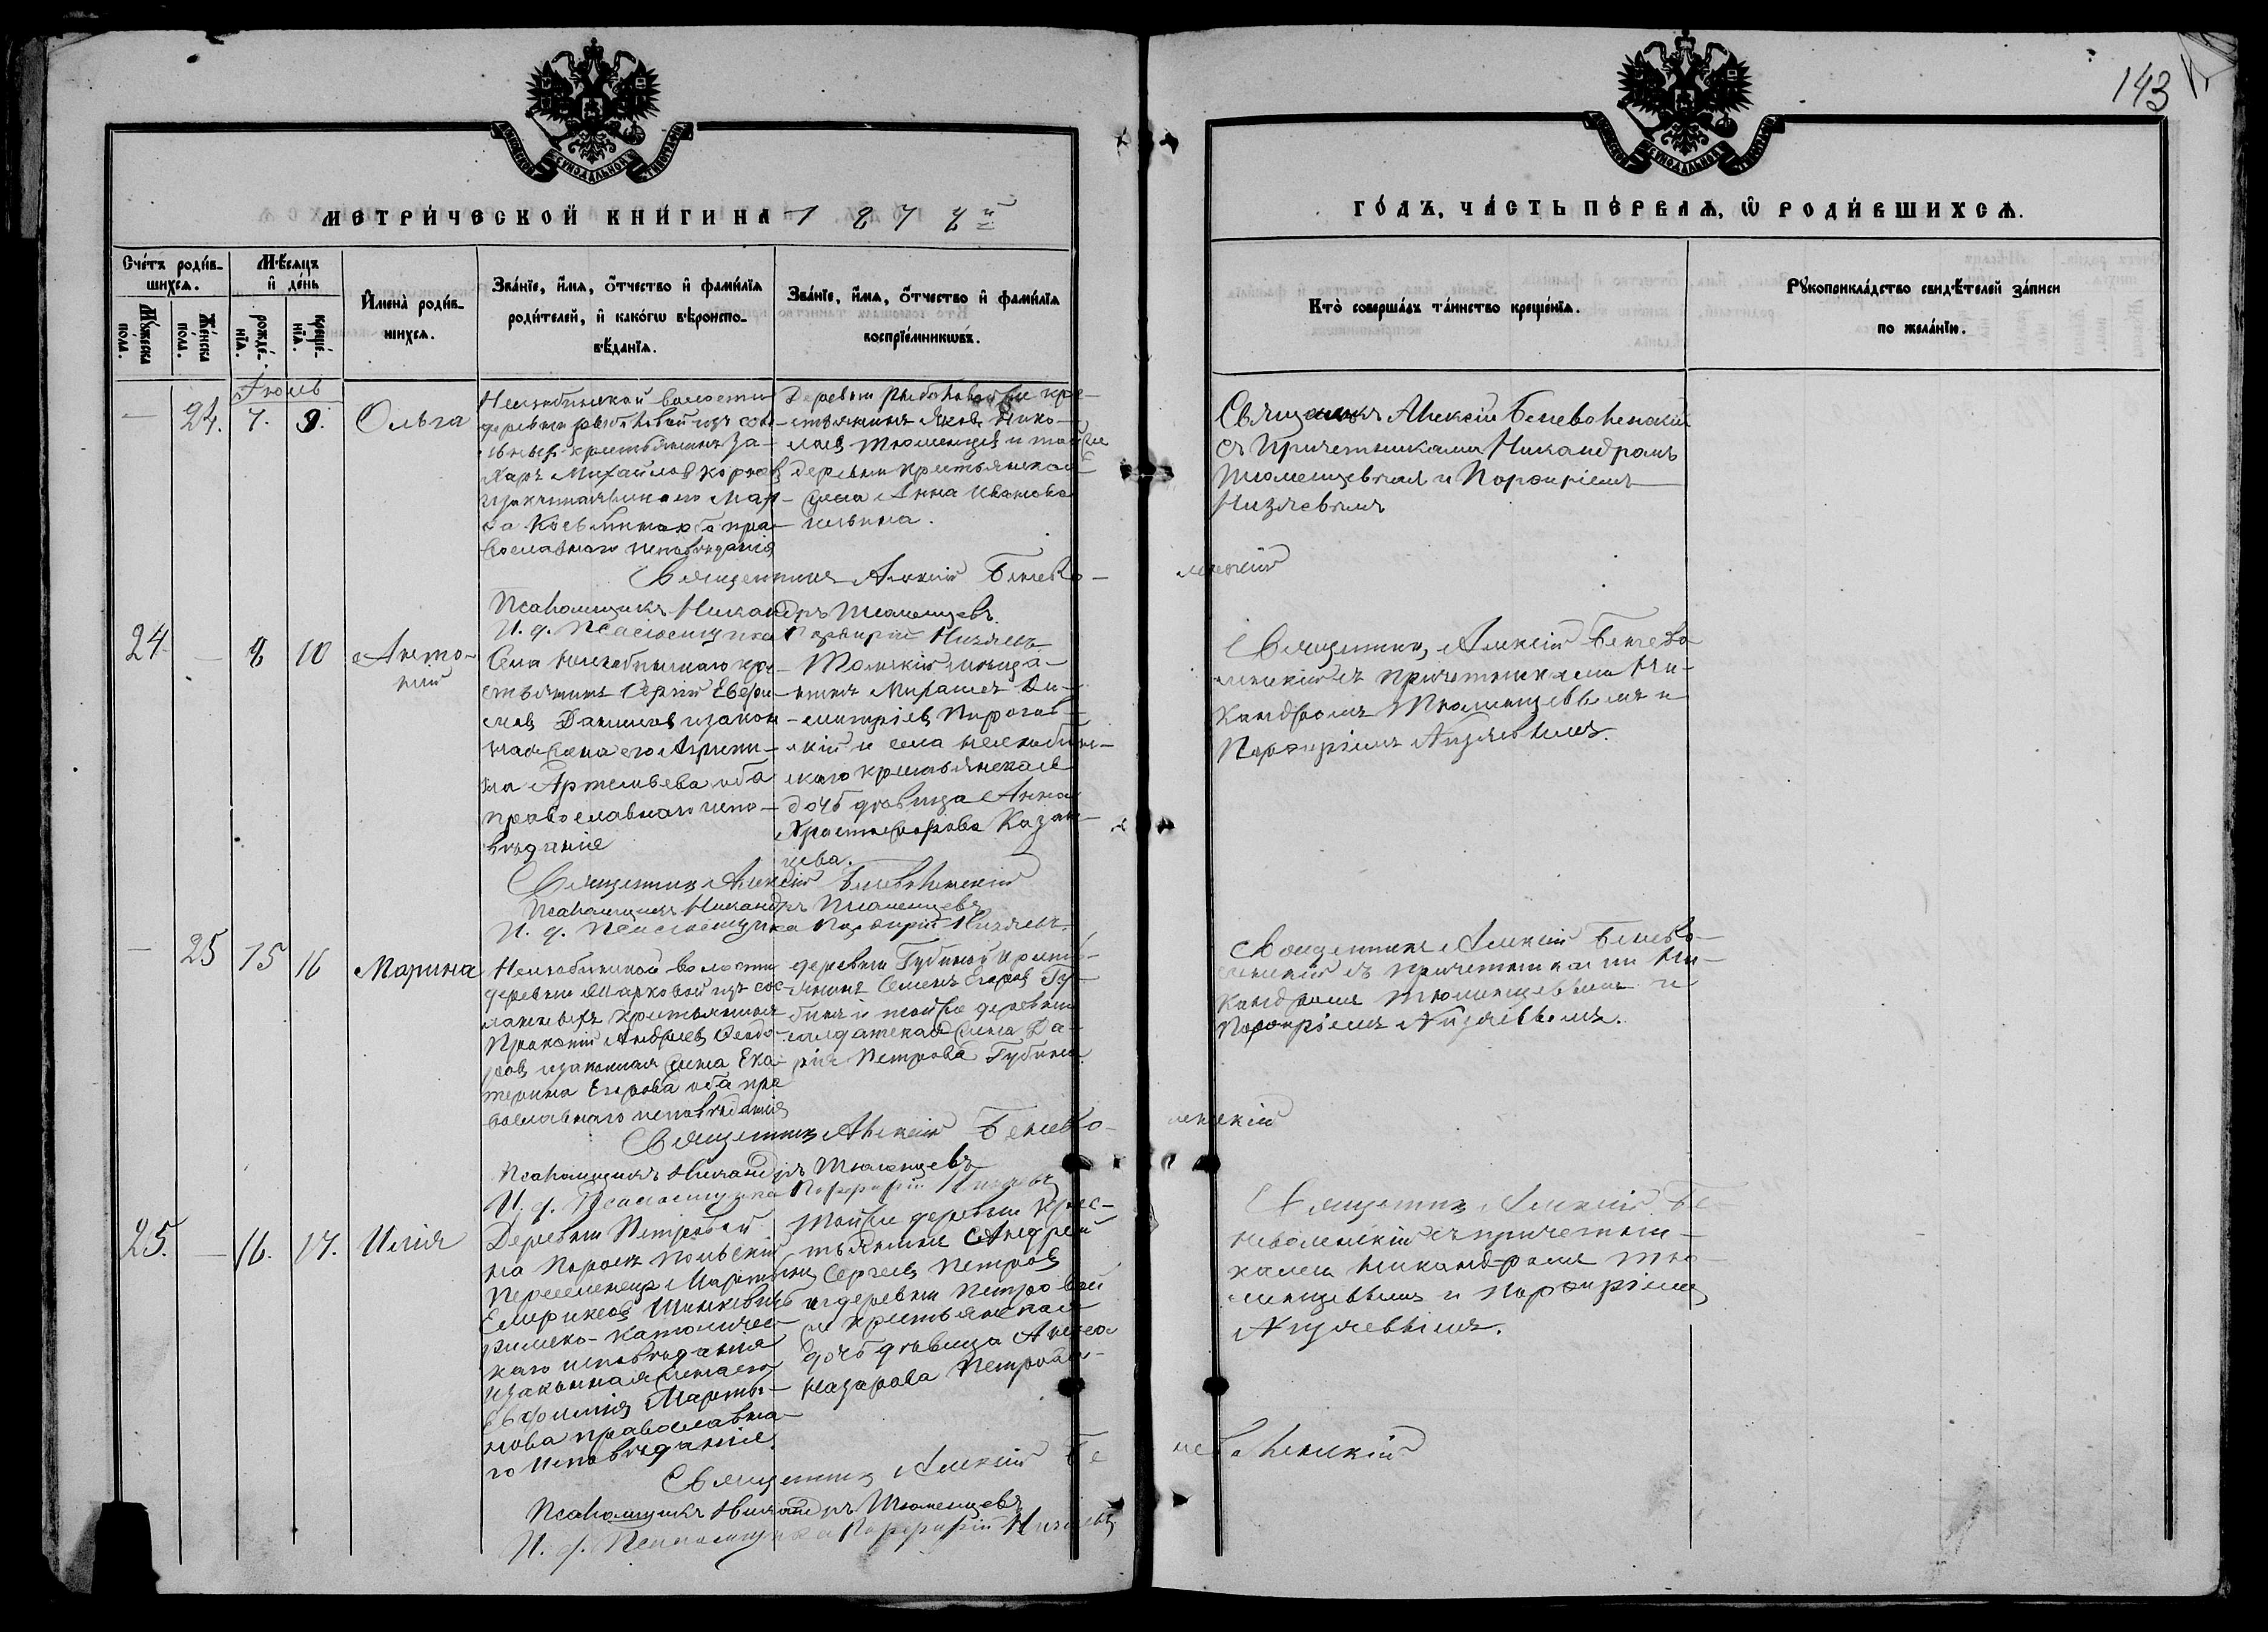 143
МЕТРИ́ЧЕСКОЙ КНИ́ГИ НА 1878й
ГО́ДЪ, ЧА́СТЬ ПЕ́РВАѦ, Ѡ РОДИ́ВШИХСѦ.
Сче́тъ роди́в-
шихсѧ.
Мꙋ́жеска
по́ла.
Же́нска
по́ла.
Мѣ́сѧцъ
и҆ де́нь
рожде́-
нїѧ.
креще́-
нїѧ.
И҆мена̀ роди́в-
шихсѧ.
Зва́нїе, и҆́мѧ, ѻ҆́тчество и҆ фами́лїѧ
роди́телей, и҆ како́гѡ вѣроиспо-
вѣ́данїѧ.
Зва́нїе, и҆́мѧ, ѻ҆́тчество и҆ фами́лїѧ
воспрїе́мникѡвъ.
Кто̀ соверша́лъ та́инство креще́нїѧ.
Рꙋкоприкла́дство свидѣ́телей за́писи
по жела́нїю.
Іюль
24. 7. 9. Ольга
Нелюбинской волости
деревни Рыбаловой изъ сос-
ланныхъ крестьянинъ За-
харъ Михайловъ
православнаго исповѣданія
Деревни Рыбаловой же кре-
стьянинъ Яковъ Нико-
лаевъ Тюменцевъ и той же
деревни крестьянская
жена Анна Иванова
Священникъ Алексій Беневоленскій
съ причетниками Никандромъ
Тюменцевымъ и Порфиріемъ
Низяевымъ
Священникъ Алексій Бенево-
ленскій
Псаломщикъ Никандръ Тюменцевъ.
И. д. Псаломщика Порфирій Низяевъ
24 8 10 Анто-
ній
Села Нелюбинскаго кре-
стьянинъ Сергій
Даниловъ и закон-
ная жена его Агрипи-
на Артемьева оба
православнаго испо-
вѣданія
Томскій мѣща-
нинъ Ди-
митріевъ
и села Нелюбин-
скаго крестьянская
дочь дѣвица Анна
Христофорова Казан-
цева.
Священникъ Алексій Бенево-
ленскій съ причетниками Ни-
кандромъ Тюменцевымъ и
Порфиріемъ Низяевымъ.
Священникъ Алексій Беневоленскій
Псаломщикъ Никандръ Тюменцевъ
И. д. Псаломщика Порфирій Низяевъ.
25 15 16 Марина
Нелюбинской волости
деревни Марковой изъ сос-
ланныхъ крестьянинъ
Прокопій Андреевъ Федо-
ровъ и законная жена Ека-
терина Егорова оба пра-
вославнаго исповѣданія
деревни Губиной кресть-
янинъ Семенъ Егоровъ Гу-
бинъ и той же деревни
солдатская жена Да-
рія Петрова Губина.
Священникъ Алексій Бенево-
ленскій съ причетниками Ни-
кандромъ Тюменцевымъ и
Порфиріемъ Низяевымъ.
Священникъ Алексій Бенево-
ленскій
Псаломщикъ Никандръ Тюменцевъ
И. д. Псаломщика Порфирій Низяевъ
25. 16. 17. Илія
Деревни Петровой
польскій
переселенецъ
римско-католичес-
каго исповѣданія
и законная жена его
Евфимія Марты-
нова православна-
го исповѣданія.
Той же деревни крес-
тьянинъ Андрей
Сергеевъ Петровъ
и деревни Петровой
же крестьянская
дочь дѣвица
Назарова Петрова
Священникъ Алексій Бе-
неволенскій съ причетни-
ками Никандромъ Тю-
менцевымъ и Порфиріемъ
Низяевымъ.
Священникъ Алексій Бе
неволенскій
Псаломщикъ Никандръ Тюменцевъ
И. д. Псаломщика Порфирій Низяевъ